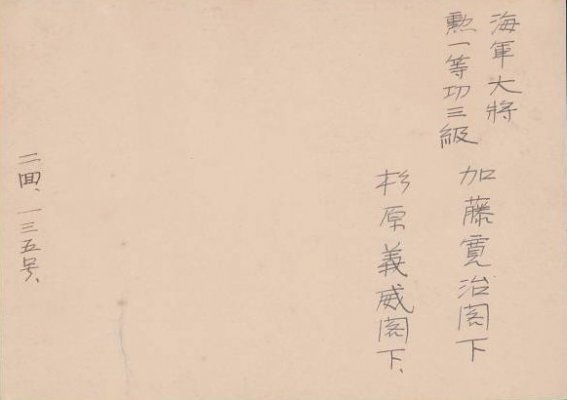 海軍大将
勲一等功三級
加藤寛治閣下
杉原義威閣下、
二回、一三五号、